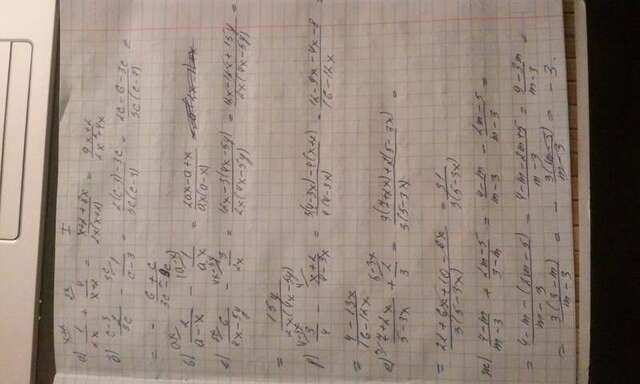 I
а) 1/2x + 4/(x+2) = (x+2+8x)/(2x(x+2)) = (9x+2)/(2x²+4x)
б) 2/3c - 1/(c-3) = (2(c-3)-3c)/(3c(c-3)) = (2c-6-3c)/(3c(c-3)) =
= - (6+c)/(3c²-9c)
в) 2/(a-x) - 1/ax = (2ax-a+x)/(ax(a-x))
г) 6/(4x-5y) - 3/2x = (12x-3(4x-5y))/(2x(4x-5y)) = (12x-12x+15y)/(2x(4x-5y)) =
= 15y/(2x(4x-5y))
3/4 - (x+2)/(4-3x) = (3(4-3x)-4(x+2))/(4(4-3x)) = (12-9x-4x-8)/(16-12x)
= (4-13x)/(16-12x)
е) (7+2x)/(5-3x) + 2/3 = (3(7+2x)+2(5-3x))/(3(5-3x)) =
= (21+6x+10-6x)/(3(5-3x)) = 31/(3(5-3x))
ж) (4-m)/(m-3) + (2m-5)/(3-m) = (4-m)/(m-3) - (2m-5)/(m-3) =
= (4-m-(2m-5))/(m-3) = (4-m-2m+5)/(m-3) = (9-3m)/(m-3) =
= 3(3-m)/(m-3) = - 3(m-3)/(m-3) = -3.